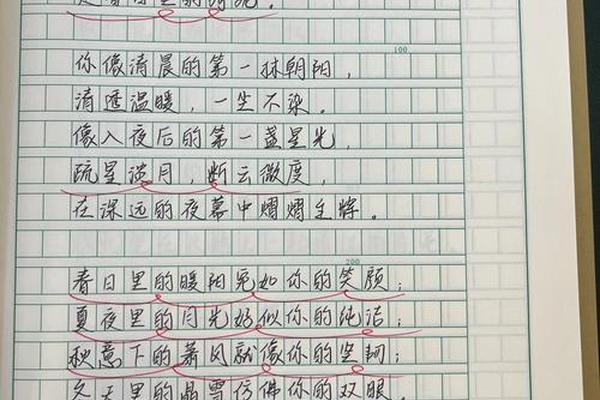 你像清晨的第一抹朝阳，
100
清透温暖，一尘不染。
像入夜后的第一盏星光，
疏星淡月，断云微度，
在深远的夜幕中熠熠生辉。
200
春日里的暖阳宛如你的笑颜；
夏夜里的月光好似你的纯洁；
秋意下的萧风就像你的坚韧；
冬天里的晶雪仿佛你的双眼。